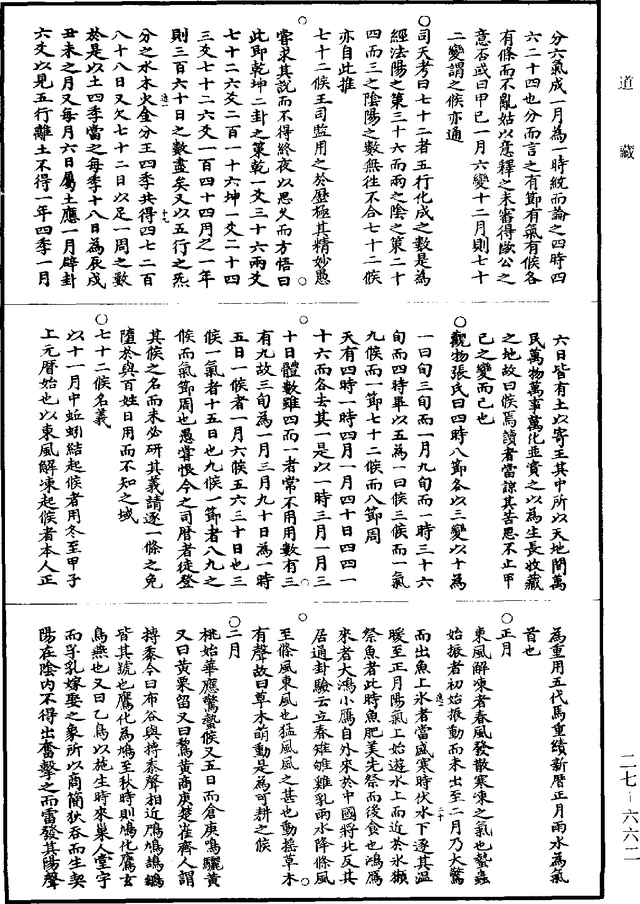 道藏
分六氣成一月為一時統而論之四時四
六二十四也分而言之有節有氣有候各
有條而不亂姑以意釋之未審得歐公之
意否或曰甲巳一月六變十二月則七十
二變謂之候亦通
○司天考曰七十二者五行化成之數是為
經法陽之策三十六而兩之陰之策二十
四而三之陰陽之數無往不合七十二候
亦自此推
七十二候王司監用之於歷極其精妙愚
嘗求其說而不得終夜以思久而方悟曰
此即乾坤二卦之策乾一爻三十六兩爻
七十二六爻二百一十六坤一爻二十四
三爻七十二六爻一百四十四月之一年
則三百六十日之數盡矣又以五行之炁
分之水木火金分王四季共得四七二百
八十八日又欠七十二日以足一周之數
於是以土四季當之每季十八日為辰戌
丑未之月又每月六日屬土應一月辟卦
六爻以見五行離土不得一年四季一月
六日皆有土以寄王其中所以天地間萬
民萬物萬事萬化並資之以為生長收藏
之地故曰候焉讀者當諒其苦思不止甲
巳之變而已也
○觀物張氏曰四時八節各以三變以十為
一曰旬三旬而一月九旬而一時三十六
旬而四時畢以五為一曰候三候而一氣
九候而一節七十二候而八節周
天有四時一時四月一月四十日四四一
十六而各去其一是以一時三月一月三
十日體數雖四而一者常不用用數有三
有九故三旬為一月三月九十日為一時
五日一候者一月六候五六三十日也三
候一氣者十五日也九候一節者八九之
候而氣節周也愚嘗恨今之司曆者徒登
其候之名而未必研其義請逐一條之免
墮於與百姓日用而不知之域
○七十二候名義
以十一月中蚯蚓結起候者用冬至甲子
上元曆始也以東風解凍起候者本人正
為重用五代馬重績新曆正月雨水為氣
首也
○正月
東風解凍者春風發散寒凍之氣也蟄蟲
始振者初始振動而未出至二月乃大驚
而出魚上冰者當盛寒時伏水下逐其溫
暖至正月陽氣上始遊水上而近於氷獺
祭魚者此時魚肥美先祭而後食也鴻鴈
來者大鴻小鴈自外來於中國將北反其
居通卦驗云立春雉雊雞乳雨水降條風
至條風東風也猛風風之甚也動搖草木
有聲故曰草木萌動是為可耕之候
○二月
桃始華應驚蟄候又五日而倉庚鳴驪黃
又曰黃栗留又曰鵹黃商庚楚雀齊人謂
摶黍今曰布谷與摶黍聲相近鳲鳩鴶鵴
皆其號也鷹化為鳩至秋時則鳩化鷹玄
鳥燕也又曰乙鳥以施生時來巢人堂宇
而孚乳嫁娶之象所以商簡狄吞而生契
陽在陰內不得出奮擊之而雷發其陽聲
二七-六六二